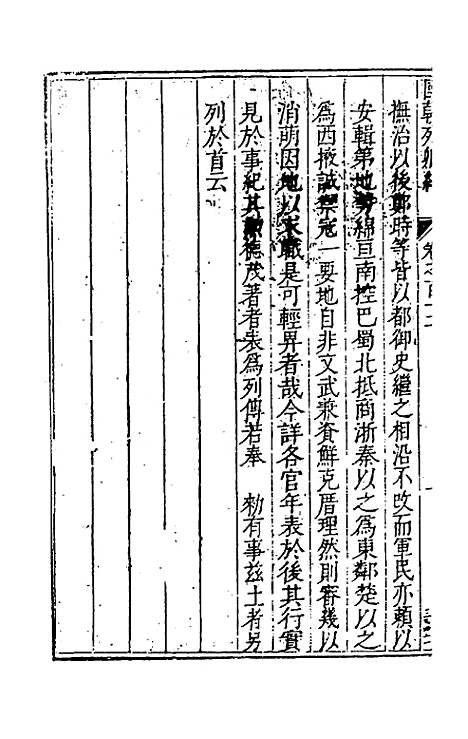 國朝列卿紀
卷之百十二
撫治以後鄭時等皆以都御史繼之相沿不改而軍民亦賴以
安輯第地勢綿亘南控巴蜀北抵商浙秦以之為東鄰楚以之
為西掖誠禦寇一要地自非文武兼資鮮克厝理然則審幾以
消萌因地以求職是可輕畀者哉今詳各官年表於後其行實
見於事紀其勳德茂著者表為列傳若奉 勑有事茲土者另
列於首云